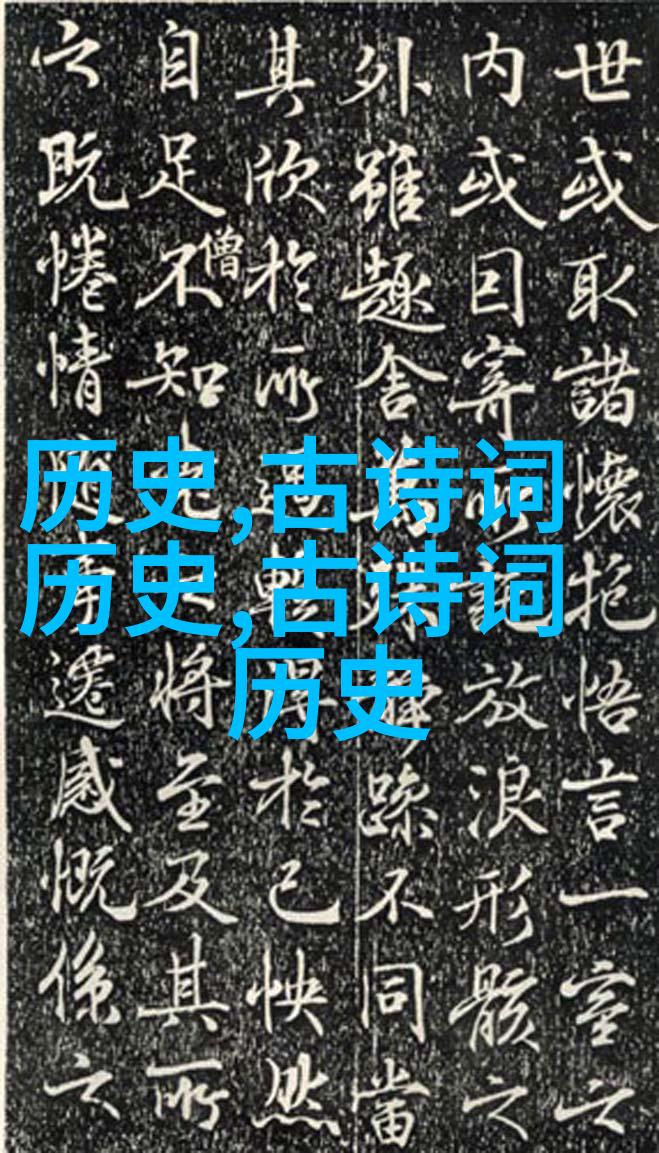 世或取諸懷抱悟言一室之
内或因寄所託放浪形骸之
外雖趣舍萬殊静躁不同當
其欣於所遇暫得於己怏然
自足不知老之將至及其所
僧
之既惓情随事遷感慨係之
历史,古诗词
历史,古诗词
历史